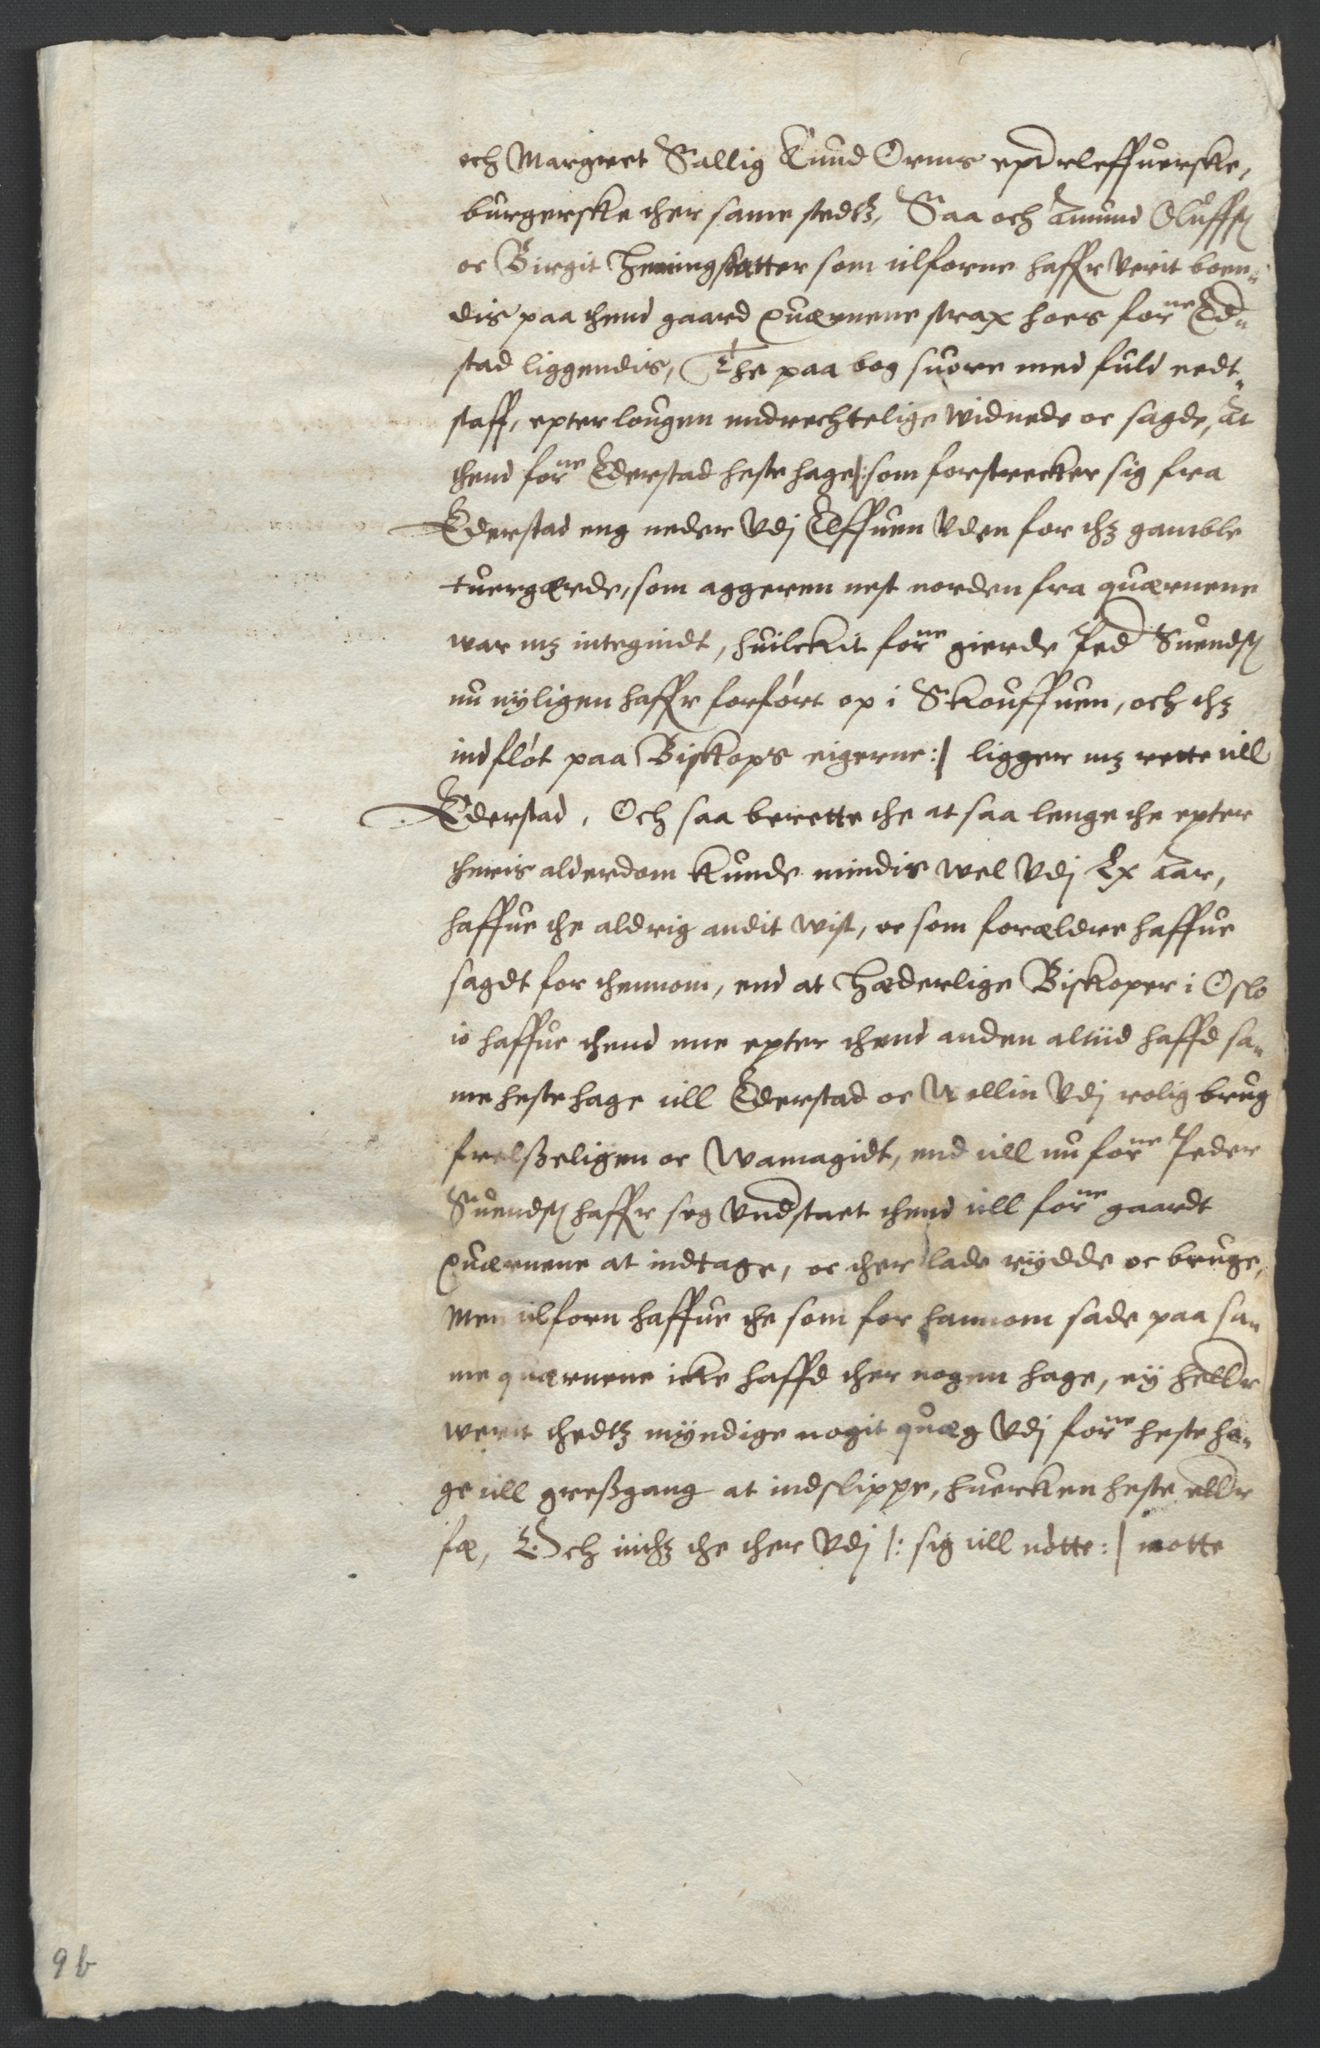 och Margreet Sallig Knud Orms epterleffuerske,
burgerske ther same stedtz, Saa och Amund Oluffs
oc Birgit Heningsdatter som tilforne haffr verit boen„
dis paa thend gaard Quærnene strax hoes forne Ed„
stad liggendis, The paa bog suore med fuld eedt„
staff, epter lougen endrechtelige widnede oc sagde, At
thend forne Ederstad hestehage |: som forstrecker sig fra
Ederstad eng neder Vdj Elffuen Vden for thz gamble
tuergærde, som aggeren nest norden fra quærnene
war mz integindt, huilckit forne gierde Ped Suends
nu nyligen haffr forfört op i Skouffuen, och thz
indflöt paa Biskops eigerne :| ligger mz rette till
Ederstad, Och saa berette the at saa lenge the epter
theris alderdom kunde mindis wel Vdj Lx Aar,
haffue the aldrig andit wist, oc som forældre haffue
sagdt for thennom, end at Hæderlige Biskoper i Oslo
io haffue thend ene epter thend anden altiid haffd sa„
me hestehage till Ederstad oc Wellin Vdj rolig brug
frelsseligen oc Wamagidt, end till nu forne Peder
Suends haffr seg Vndstaet thend till forne gaardt
Quærnene at indtage, oc ther lade rydde oc bruge,
Men tilforn haffue the som for hannom sade paa sa„
me quærnene icke haffd ther nogen hage, ey heller
werit thedtz myndige nogit quæg Vdj forne hesteha„
ge till gressgang at indslippe, huercken heste eller
fæ, Och inthz the ther Vdj |: sig till nötte :| motte
9b